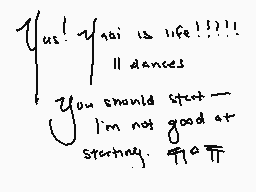 Yus! Yaoi is life!!!!!
|| dances
You should start —
I'm not good at
starting. ╥▵╥